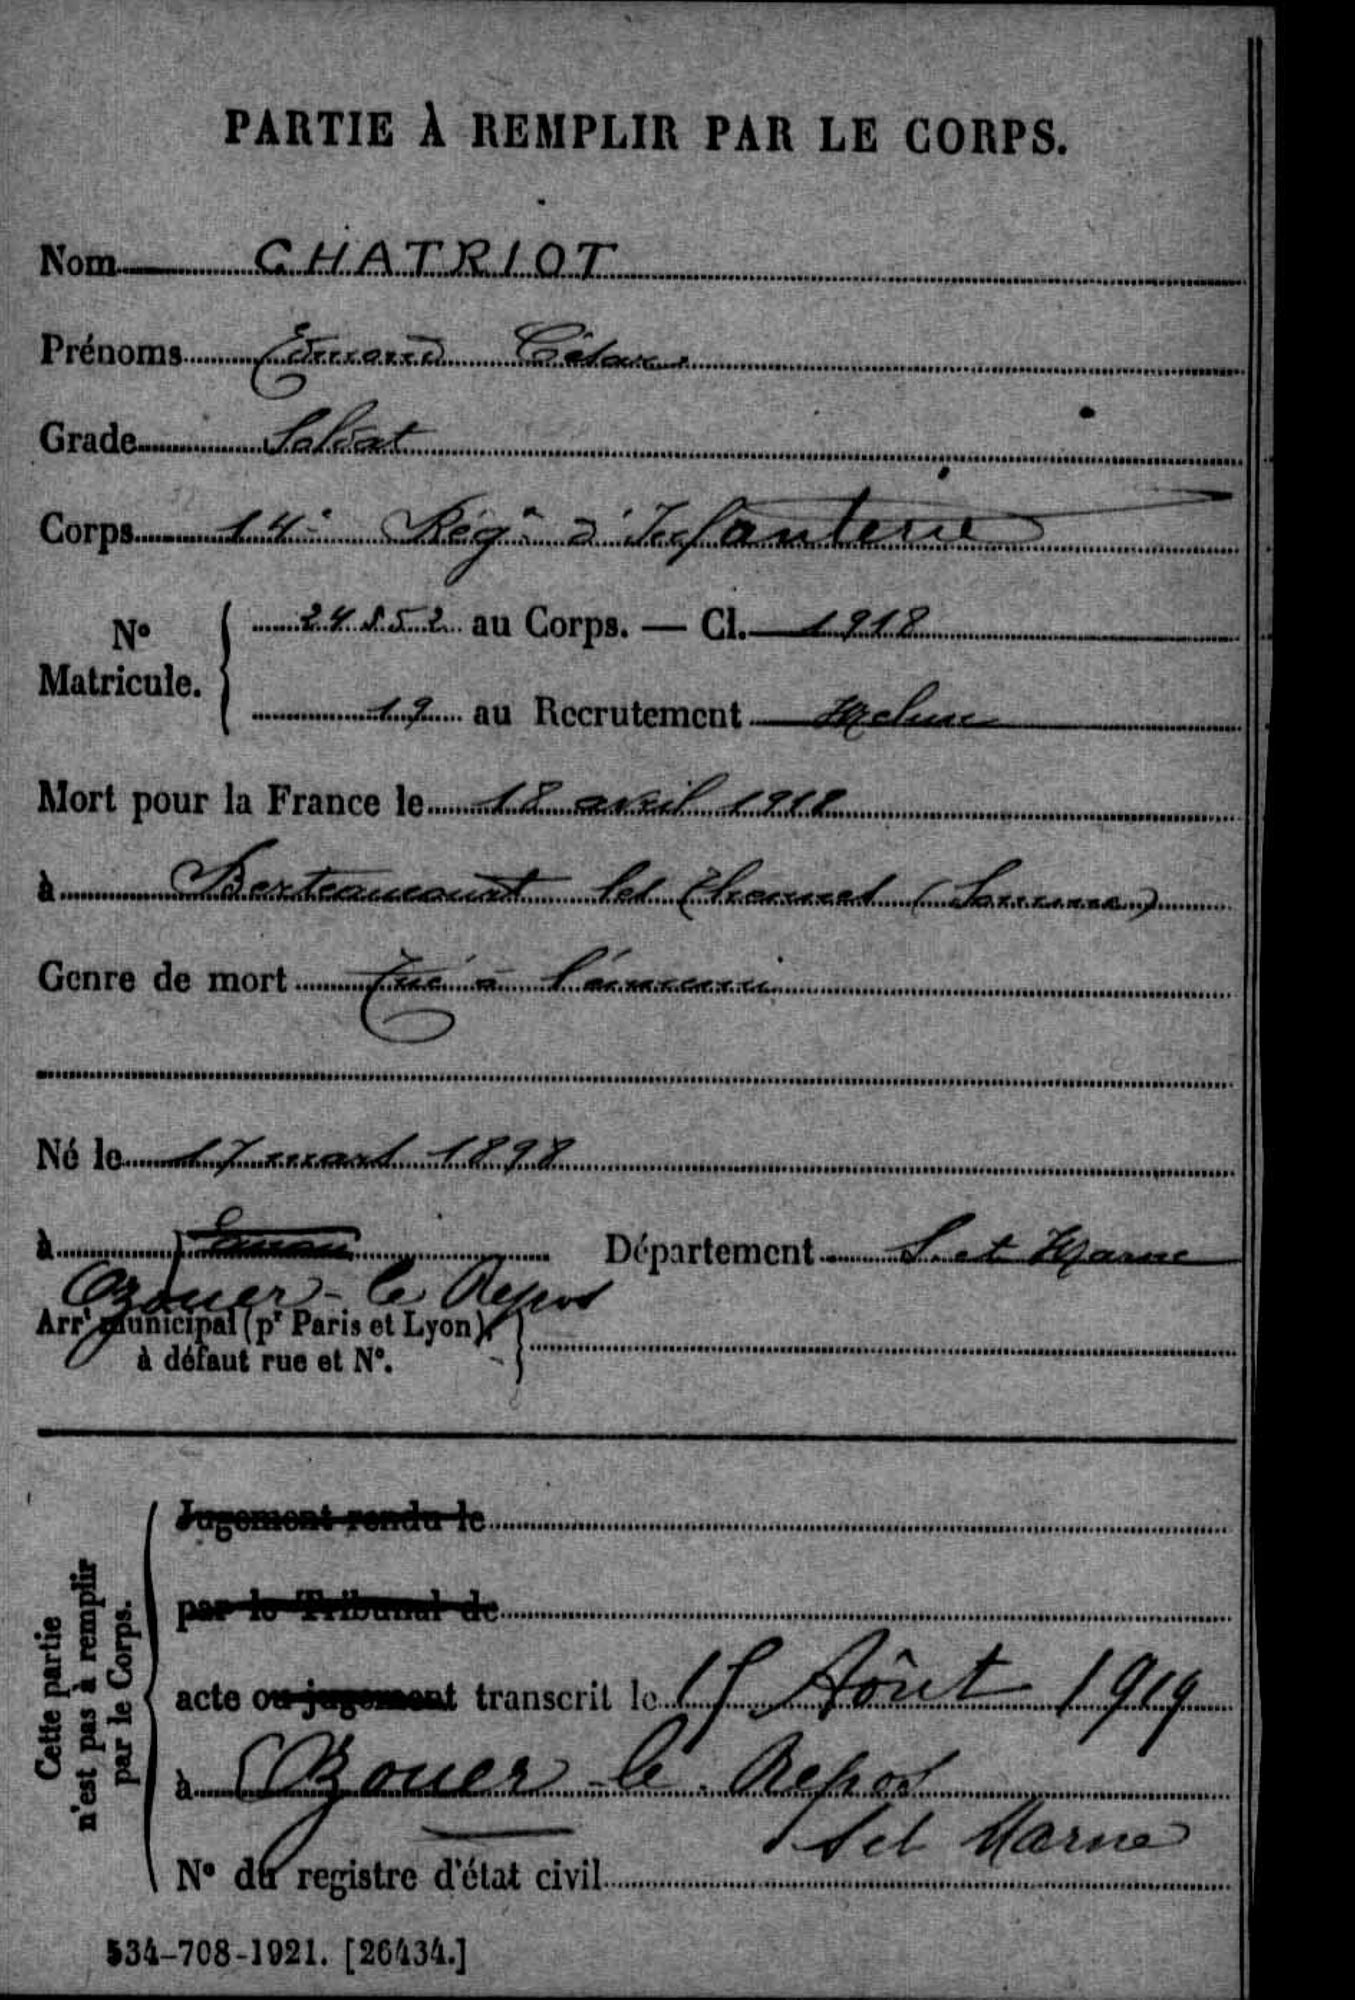 PARTIE À REMPLIR PAR LE CORPS.
Nom CHATRIOT
Prénoms Edmond César
Grade Soldat
Corps 14e Régt d'Infanterie
No Matricule. 24852 au Corps. — Cl. 1918
19 au Recrutement Melun
Mort pour la France le 18 avril 1918
à Berteaucourt les Thennes (Somme)
Genre de mort Tué à l'ennemi
Né le 17 mars 1898
à Département S. et Marne
Bouer-le Repos
Arrt municipal (pr Paris et Lyon),
à défaut rue et No.
Cette partie
n'est pas à remplir
par le Corps.
Jugement rendu le
par le Tribunal de
acte ou jugement transcrit le 15 Aôut 1919
à Bouer-le-Repos
S et Marne
No du registre d'état civil
534-708-1921. [26434.]